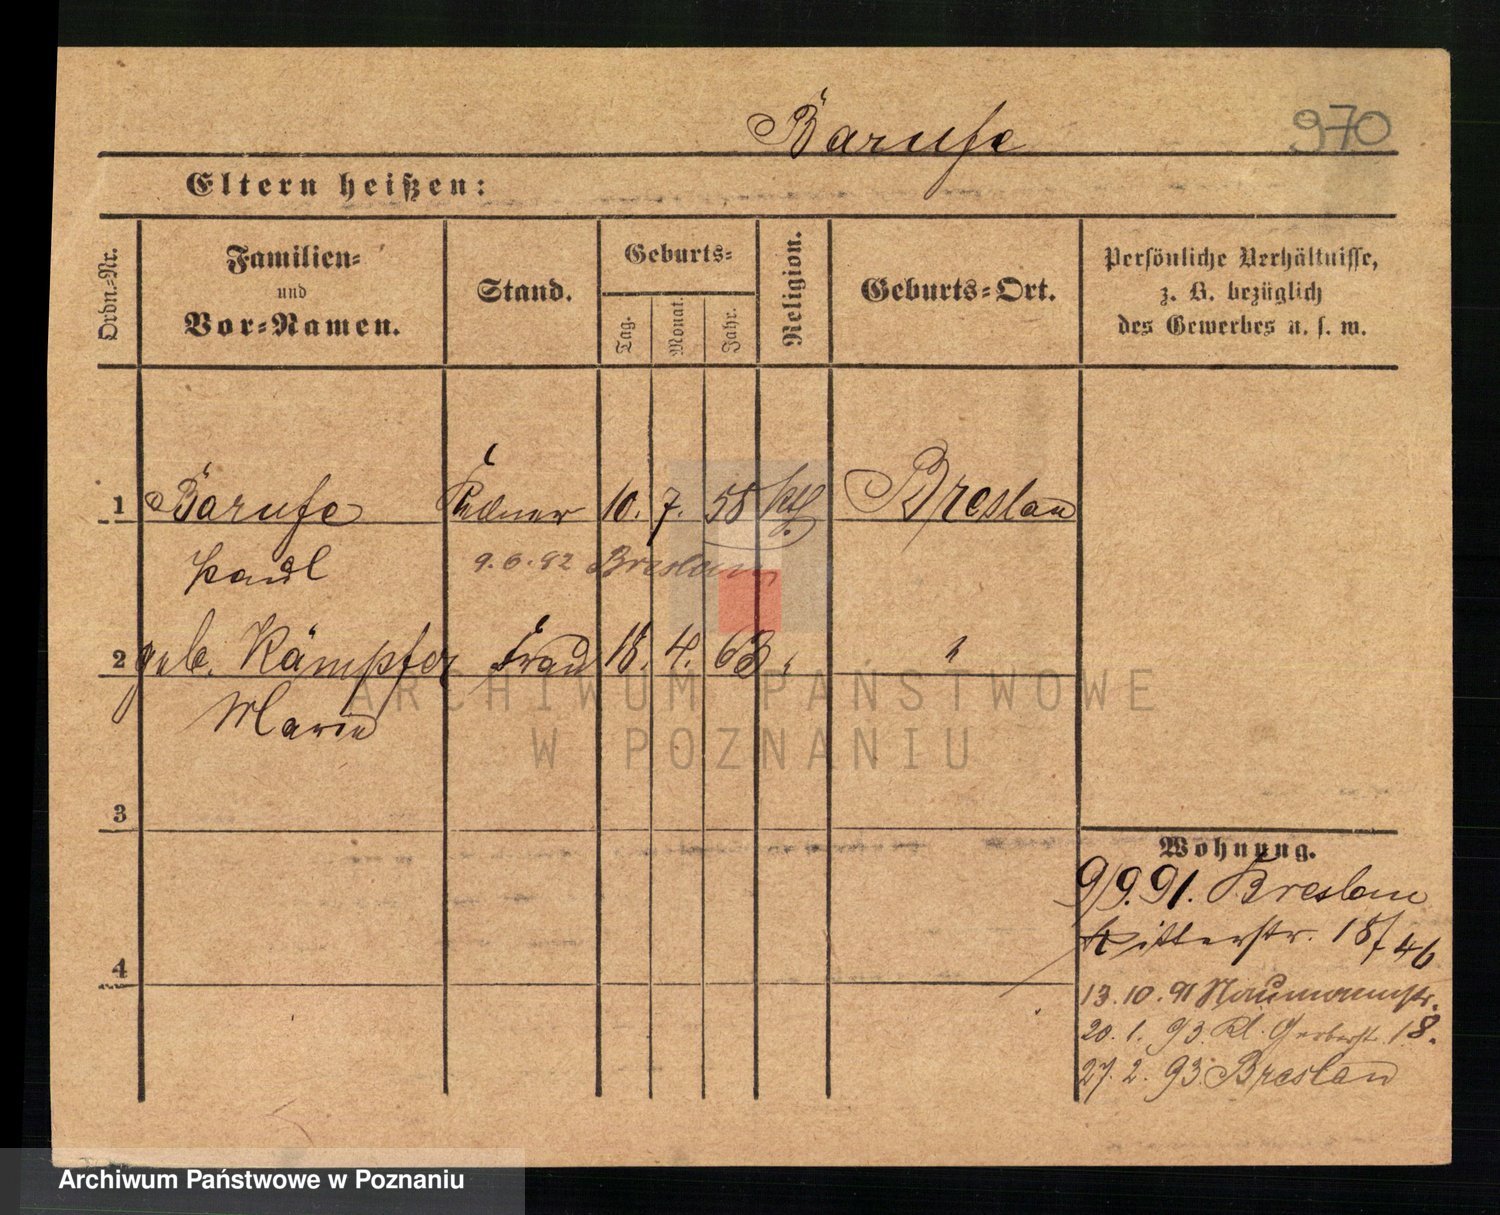 Barufe
970
Eltern heißen:
Ordn.-Nr.
Familien-
und
Vor-Namen.
Stand.
Geburts-
Tag.
Monat.
Jahr.
Religion.
Geburts-Ort.
Persönliche Verhältnisse,
z. B. bezüglich
des Gewerbes u. s. w.
1 Barufe 10. 7. 58 ktl. Breslau
Paul 9.6.92 Breslau
2 geb. Kämpfer Frau 18. 4. 63 " "
Marie
3
4
Wohnung.
9/9.91. Breslau
Ritterstr. 18/46
13.10.91 Naumannstr.
20.1.93. Kl. Gerberstr. 18.
27.2.93. Breslau
ARCHIWUM PAŃSTWOWE
W POZNANIU
Archiwum Państwowe w Poznaniu